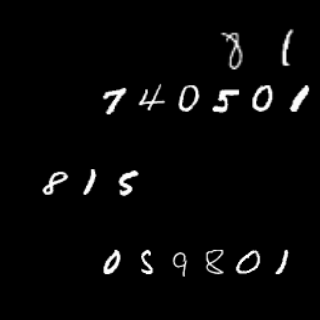 81
740501
815
059801